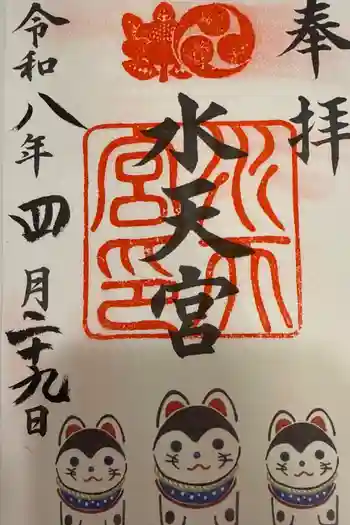 奉拝
水天宮
水天宮印
令和八年四月二十九日